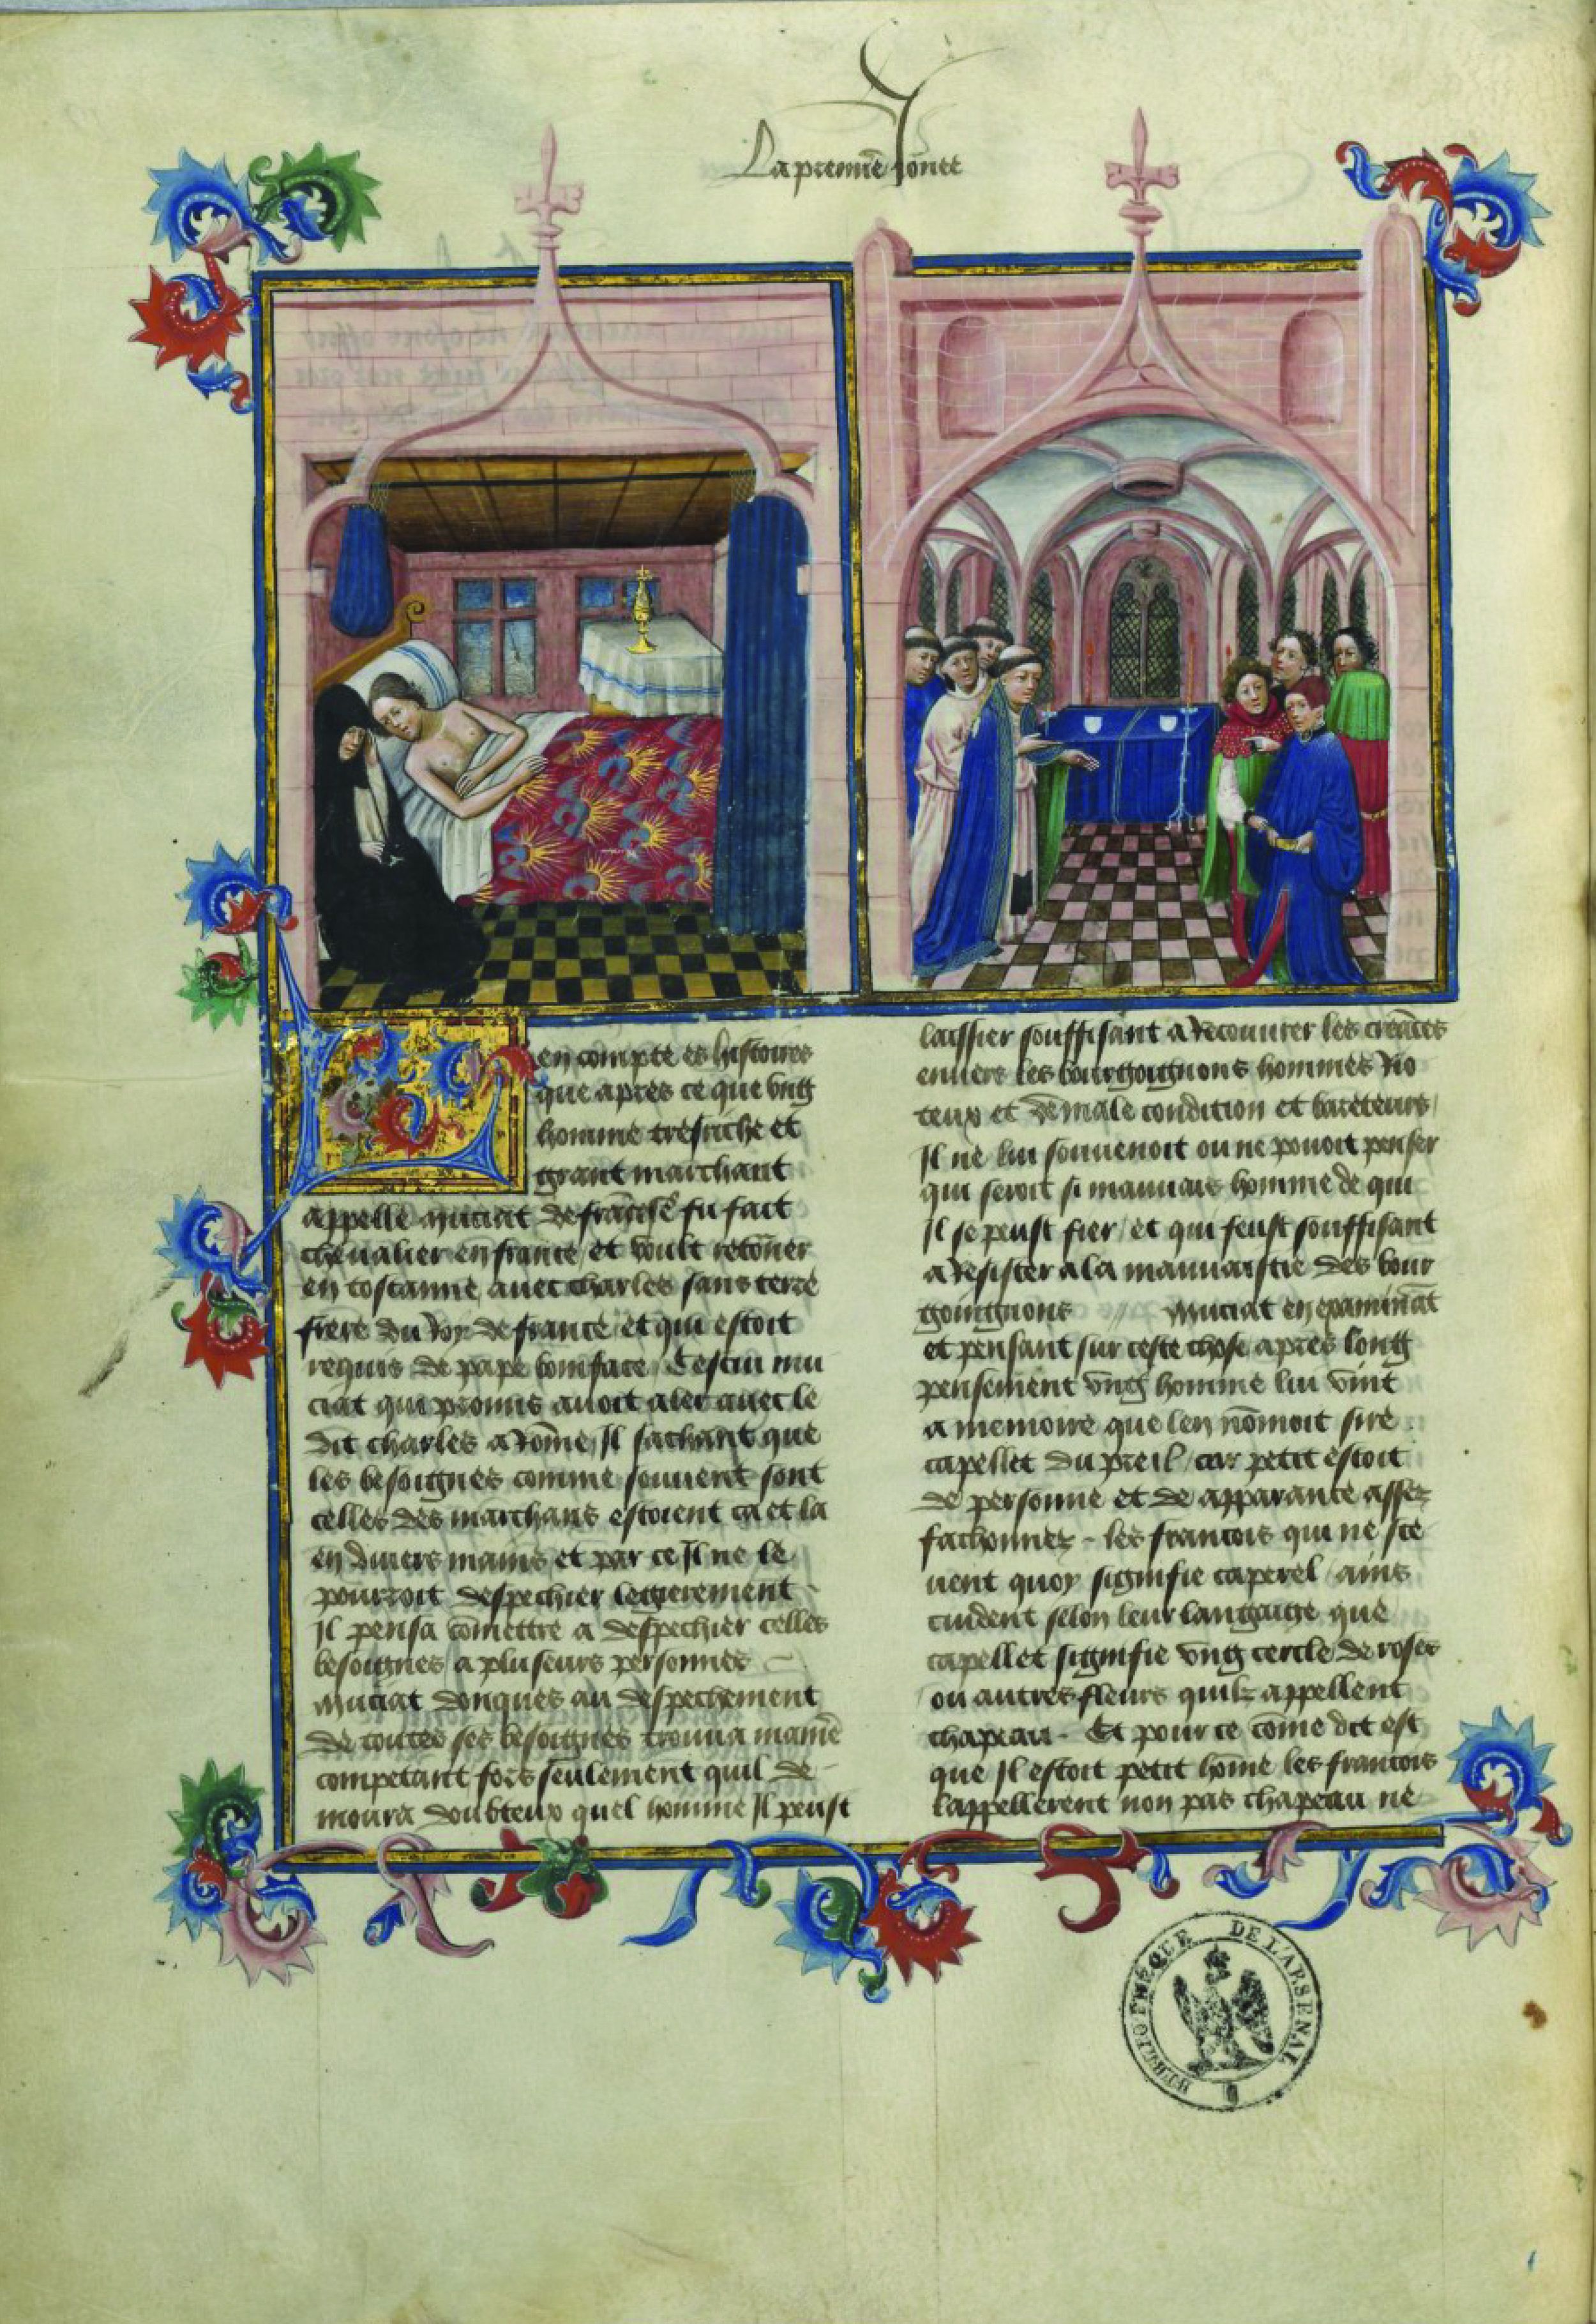 La premiere Jornee
Len compte es histoires
que apres ce que ung
homme tresriche et
grant marchant
appelle muciat de francise fu fait
chevalier en france et voult retorner
en toscanne avec charles sans terre
frere du Roy de france et qui estoit
requis de pape boniface Cestui mu
ciat qui promis avoit aler avec le
dit charles a rome Il sachant que
les besoignes comme souvent sont
celles des marchans estoient ca et la
en divers mains et par ce Il ne le
pourroit despechier legierement
Il pensa comettre a despechier celles
besoignes a pluseurs personnes
muciat donques au despechement
de toutes ses besoignes trouva maniere
competant fors seulement quil de
moura doubteux quel homme Il peust
laissier souffisant a recouvrer les creances
envers les bourgoignons hommes Rio
teux et de male condition et barateurs
Il ne lui souvenoit ou ne povoit penser
qui seroit si mauvais homme de qui
Il se peust fier et qui feust souffisant
a resister a la mauvaistie des bour
goingnons // muciat en examinant
et pensant sur ceste chose apres long
pensement ung homme lui vint
a memoire que len nommoit sire
capellet du preil car petit estoit
de personne et de apparance assez
fachonnez les francois qui ne sce
uent quoy signifie caperel ains
cuident selon leur langaige que
capellet signifie ung cercle de roses
ou autres fleurs quilz appellent
chapeau Et pour ce come dit est
que Il estoit petit home les francois
lappellerent non pas chapeau ne
BIBLIOTHÈQUE DE L'ARSENAL